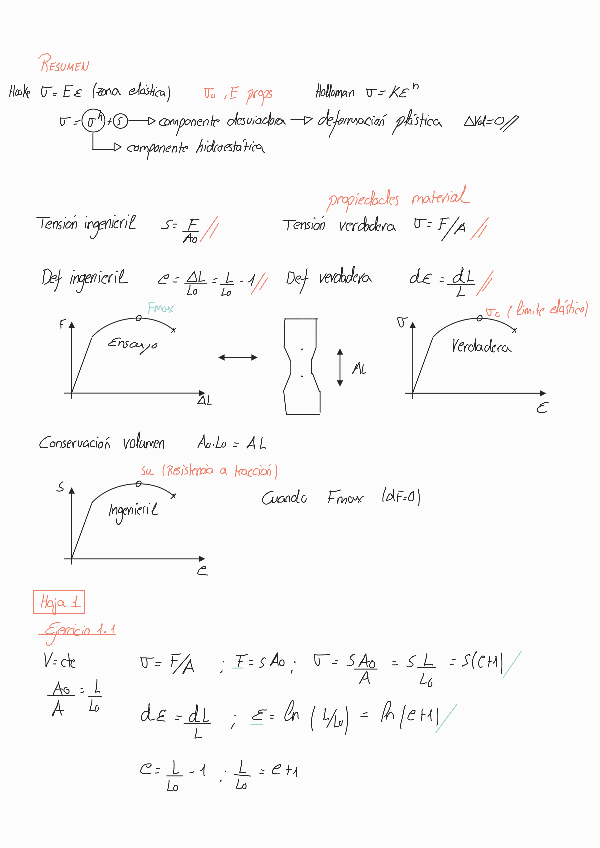 RESUMEN
Hooke σ = E ε (zona elástica) σ₀, E props Holloman σ = Kεⁿ
σ = σʰ + s → componente desviadora → deformación plástica ΔVol=0//
componente hidrostática
propiedades material
Tensión ingenieril s = F/A₀ // Tensión verdadera σ = F/A //
Def ingenieril e = ΔL/L₀ = L/L₀ - 1 // Def verdadera dε = dL/L //
Fmax
F Ensayo ΔL
ΔL
σ₀ (límite elástico)
σ Verdadera ε
Conservación volumen A₀·L₀ = A L
su (Resistencia a tracción)
S Ingenieril e
Cuando Fmax (dF=0)
Hoja 1
Ejercicio 1.1
V=cte σ = F/A ; F = s A₀ ; σ = s A₀/A = s L/L₀ = s(e+1)
A₀/A = L/L₀
dε = dL/L ; ε = ln (L/L₀) = ln(e+1)
e = L/L₀ - 1 ; L/L₀ = e+1